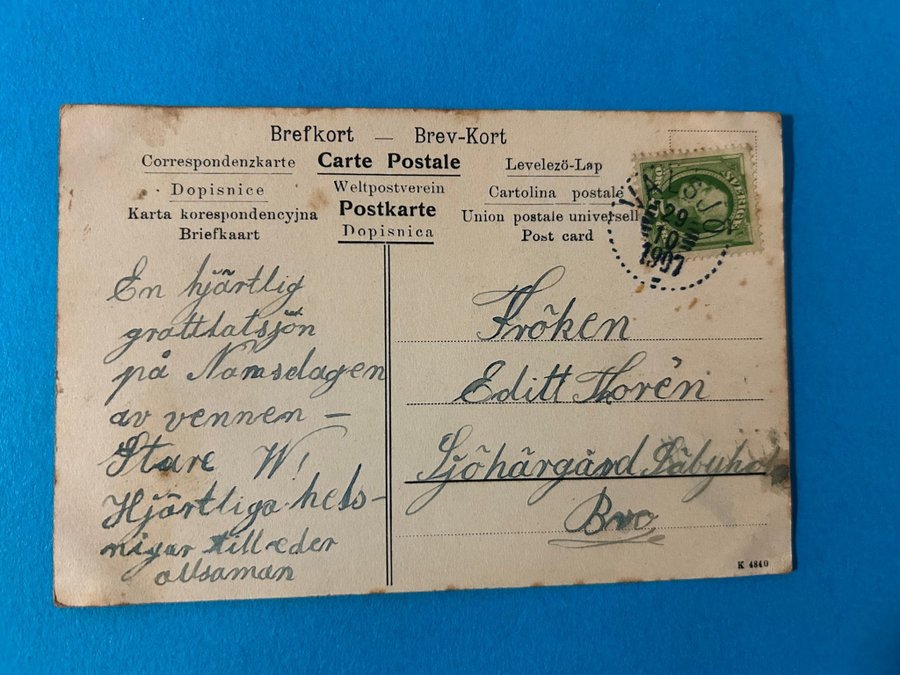 Brefkort — Brev-Kort
Correspondenzkarte Carte Postale Levelezö-Lap
Dopisnice Weltpostverein Cartolina postale
Karta korespondencyjna Postkarte Union postale universell
Briefkaart Dopisnica Post card
SVERIGE
29
10
1907
En hjärtlig
grattlatsjön
på Namsdagen
av vennen —
Stare W!
Hjärtliga hels-
nigar till eder
allsaman
Fröken
Editt Thorén
Sjöhärgård Säbyholm
Bro
K 4840